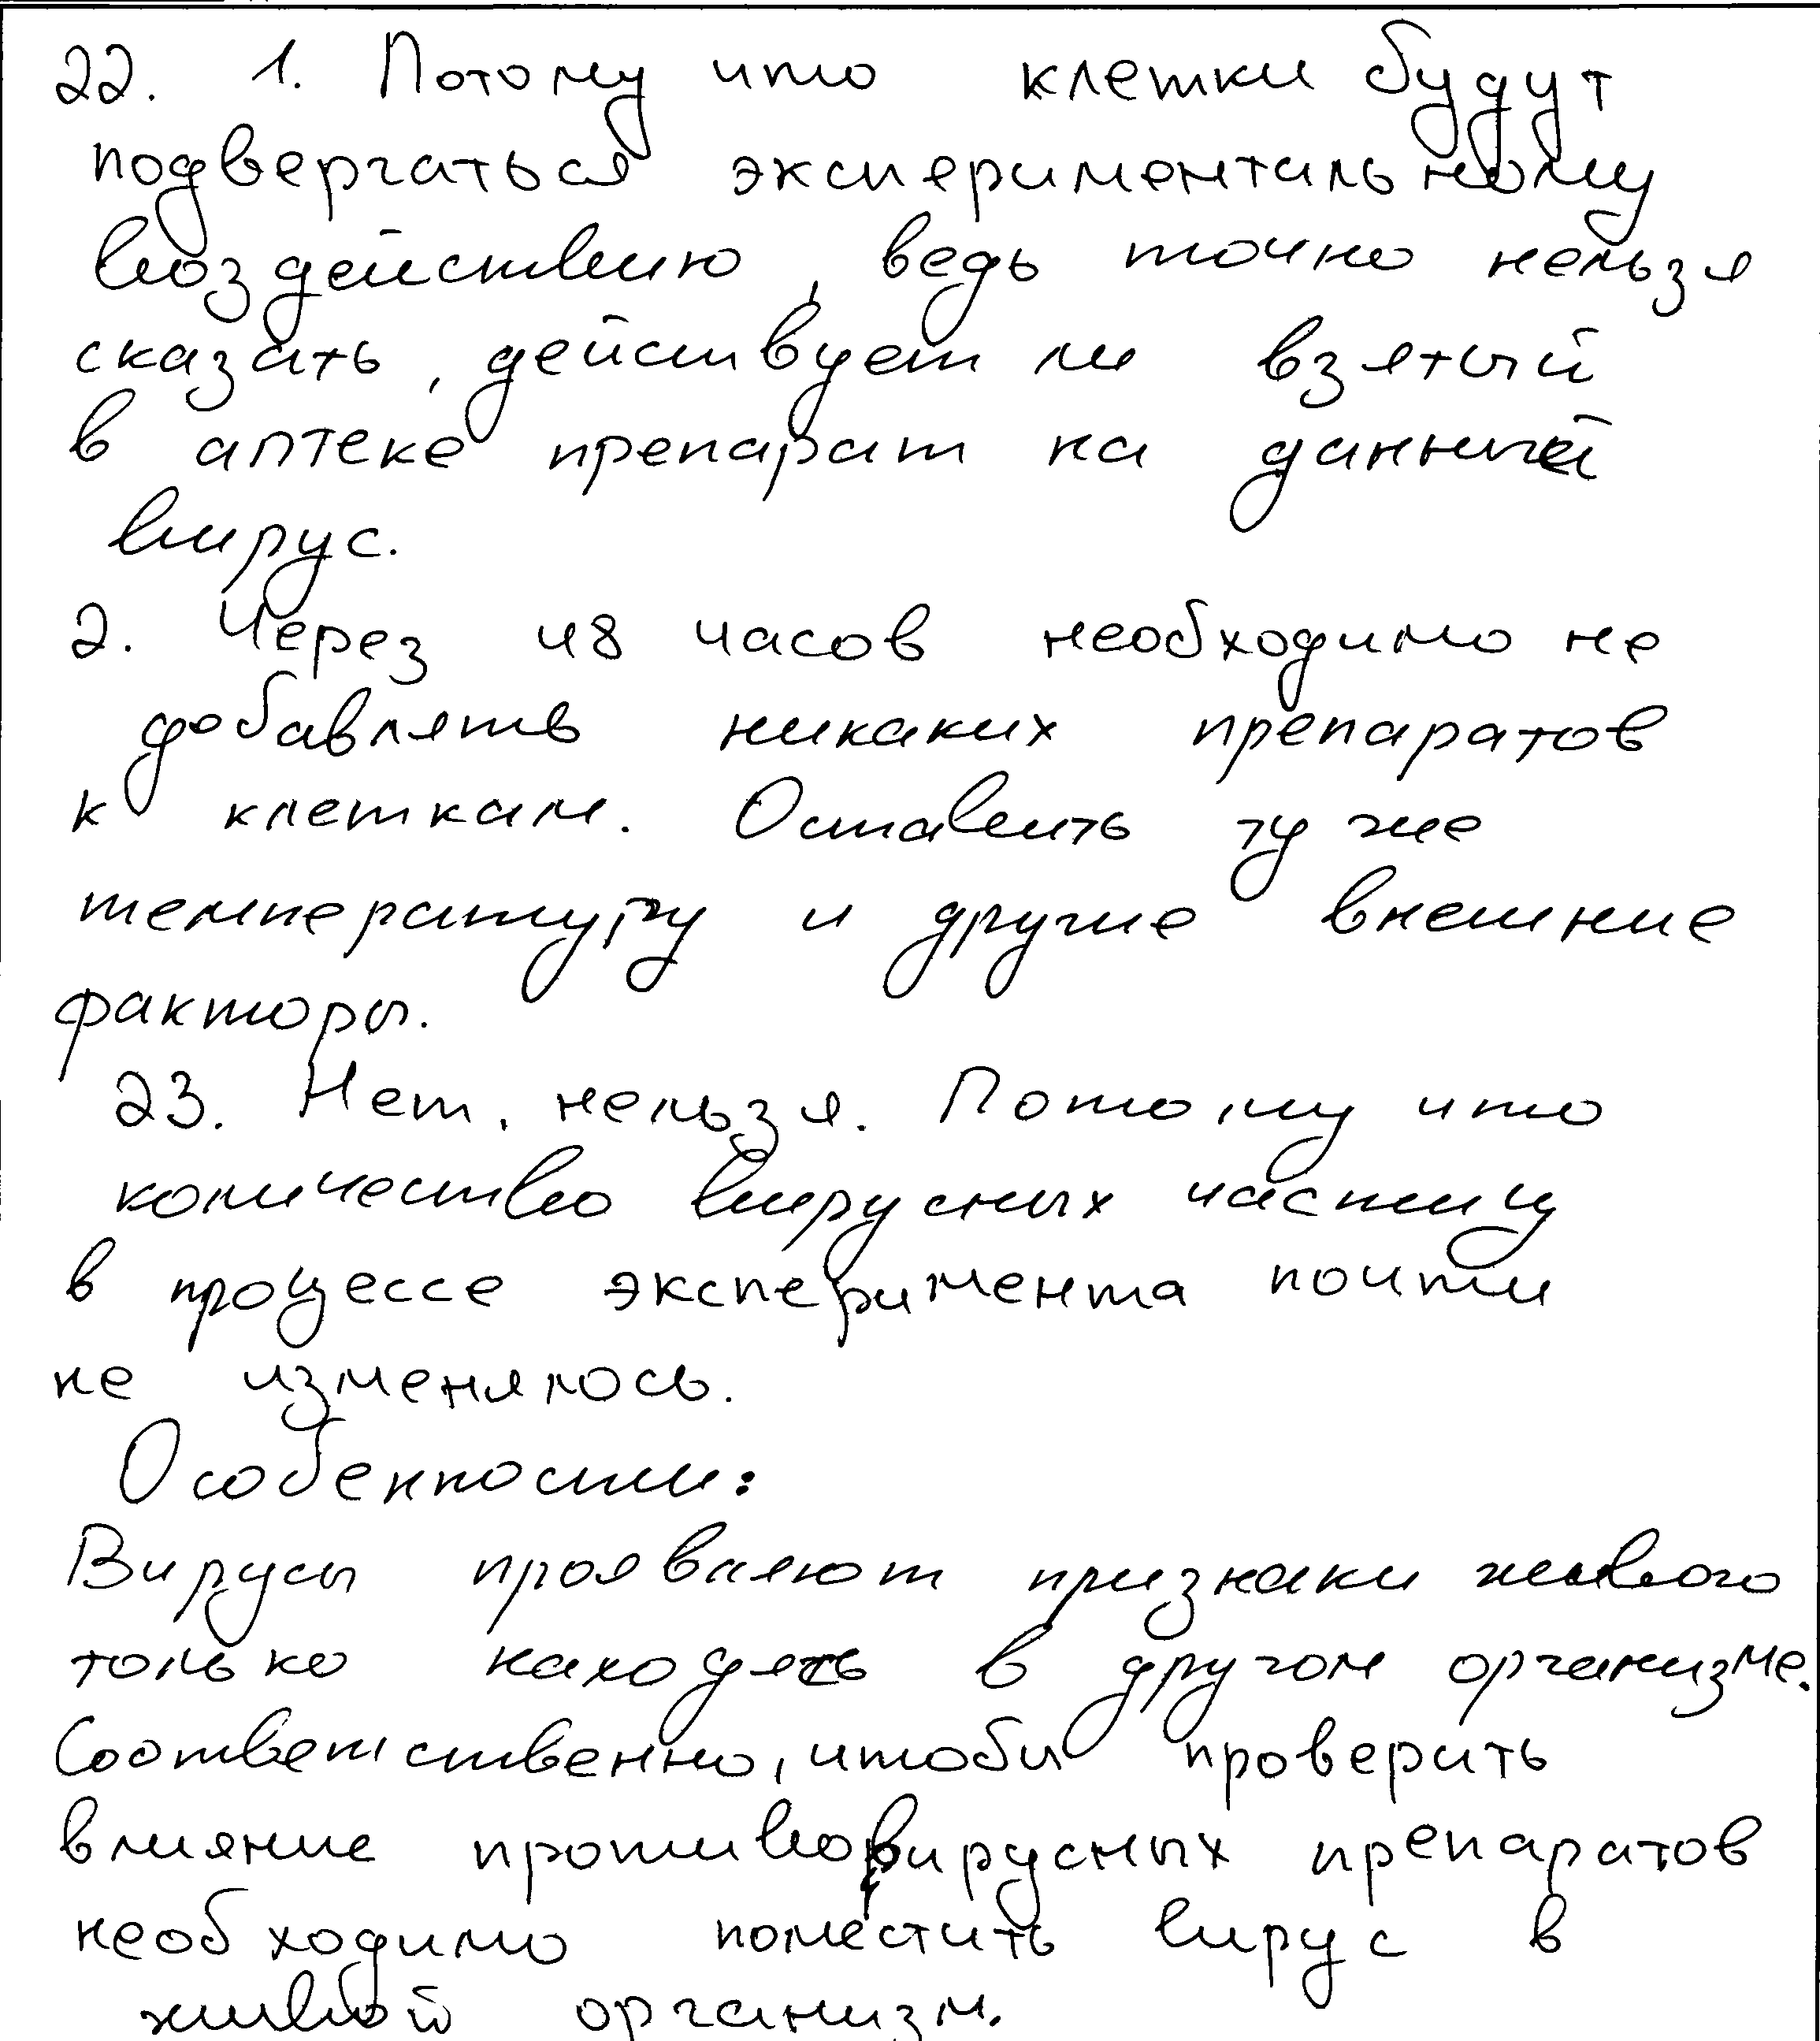 22. 1. Потому что клетки будут
подвергаться экспериментальному
воздействию, ведь точно нельзя
сказать, действует ли взятый
в аптеке препарат на данный
вирус.
2. Через 48 часов необходимо не
добавлять никаких препаратов
к клеткам. Оставить ту же
температуру и другие внешние
факторы.
23. Нет, нельзя. Потому что
количество вирусных частиц
в процессе эксперимента почти
не изменялось.
Особенности:
Вирусы проявляют признаки живого
только находясь в другом организме.
Соответственно, чтобы проверить
влияние противовирусных препаратов
необходимо поместить вирус в
живой организм.